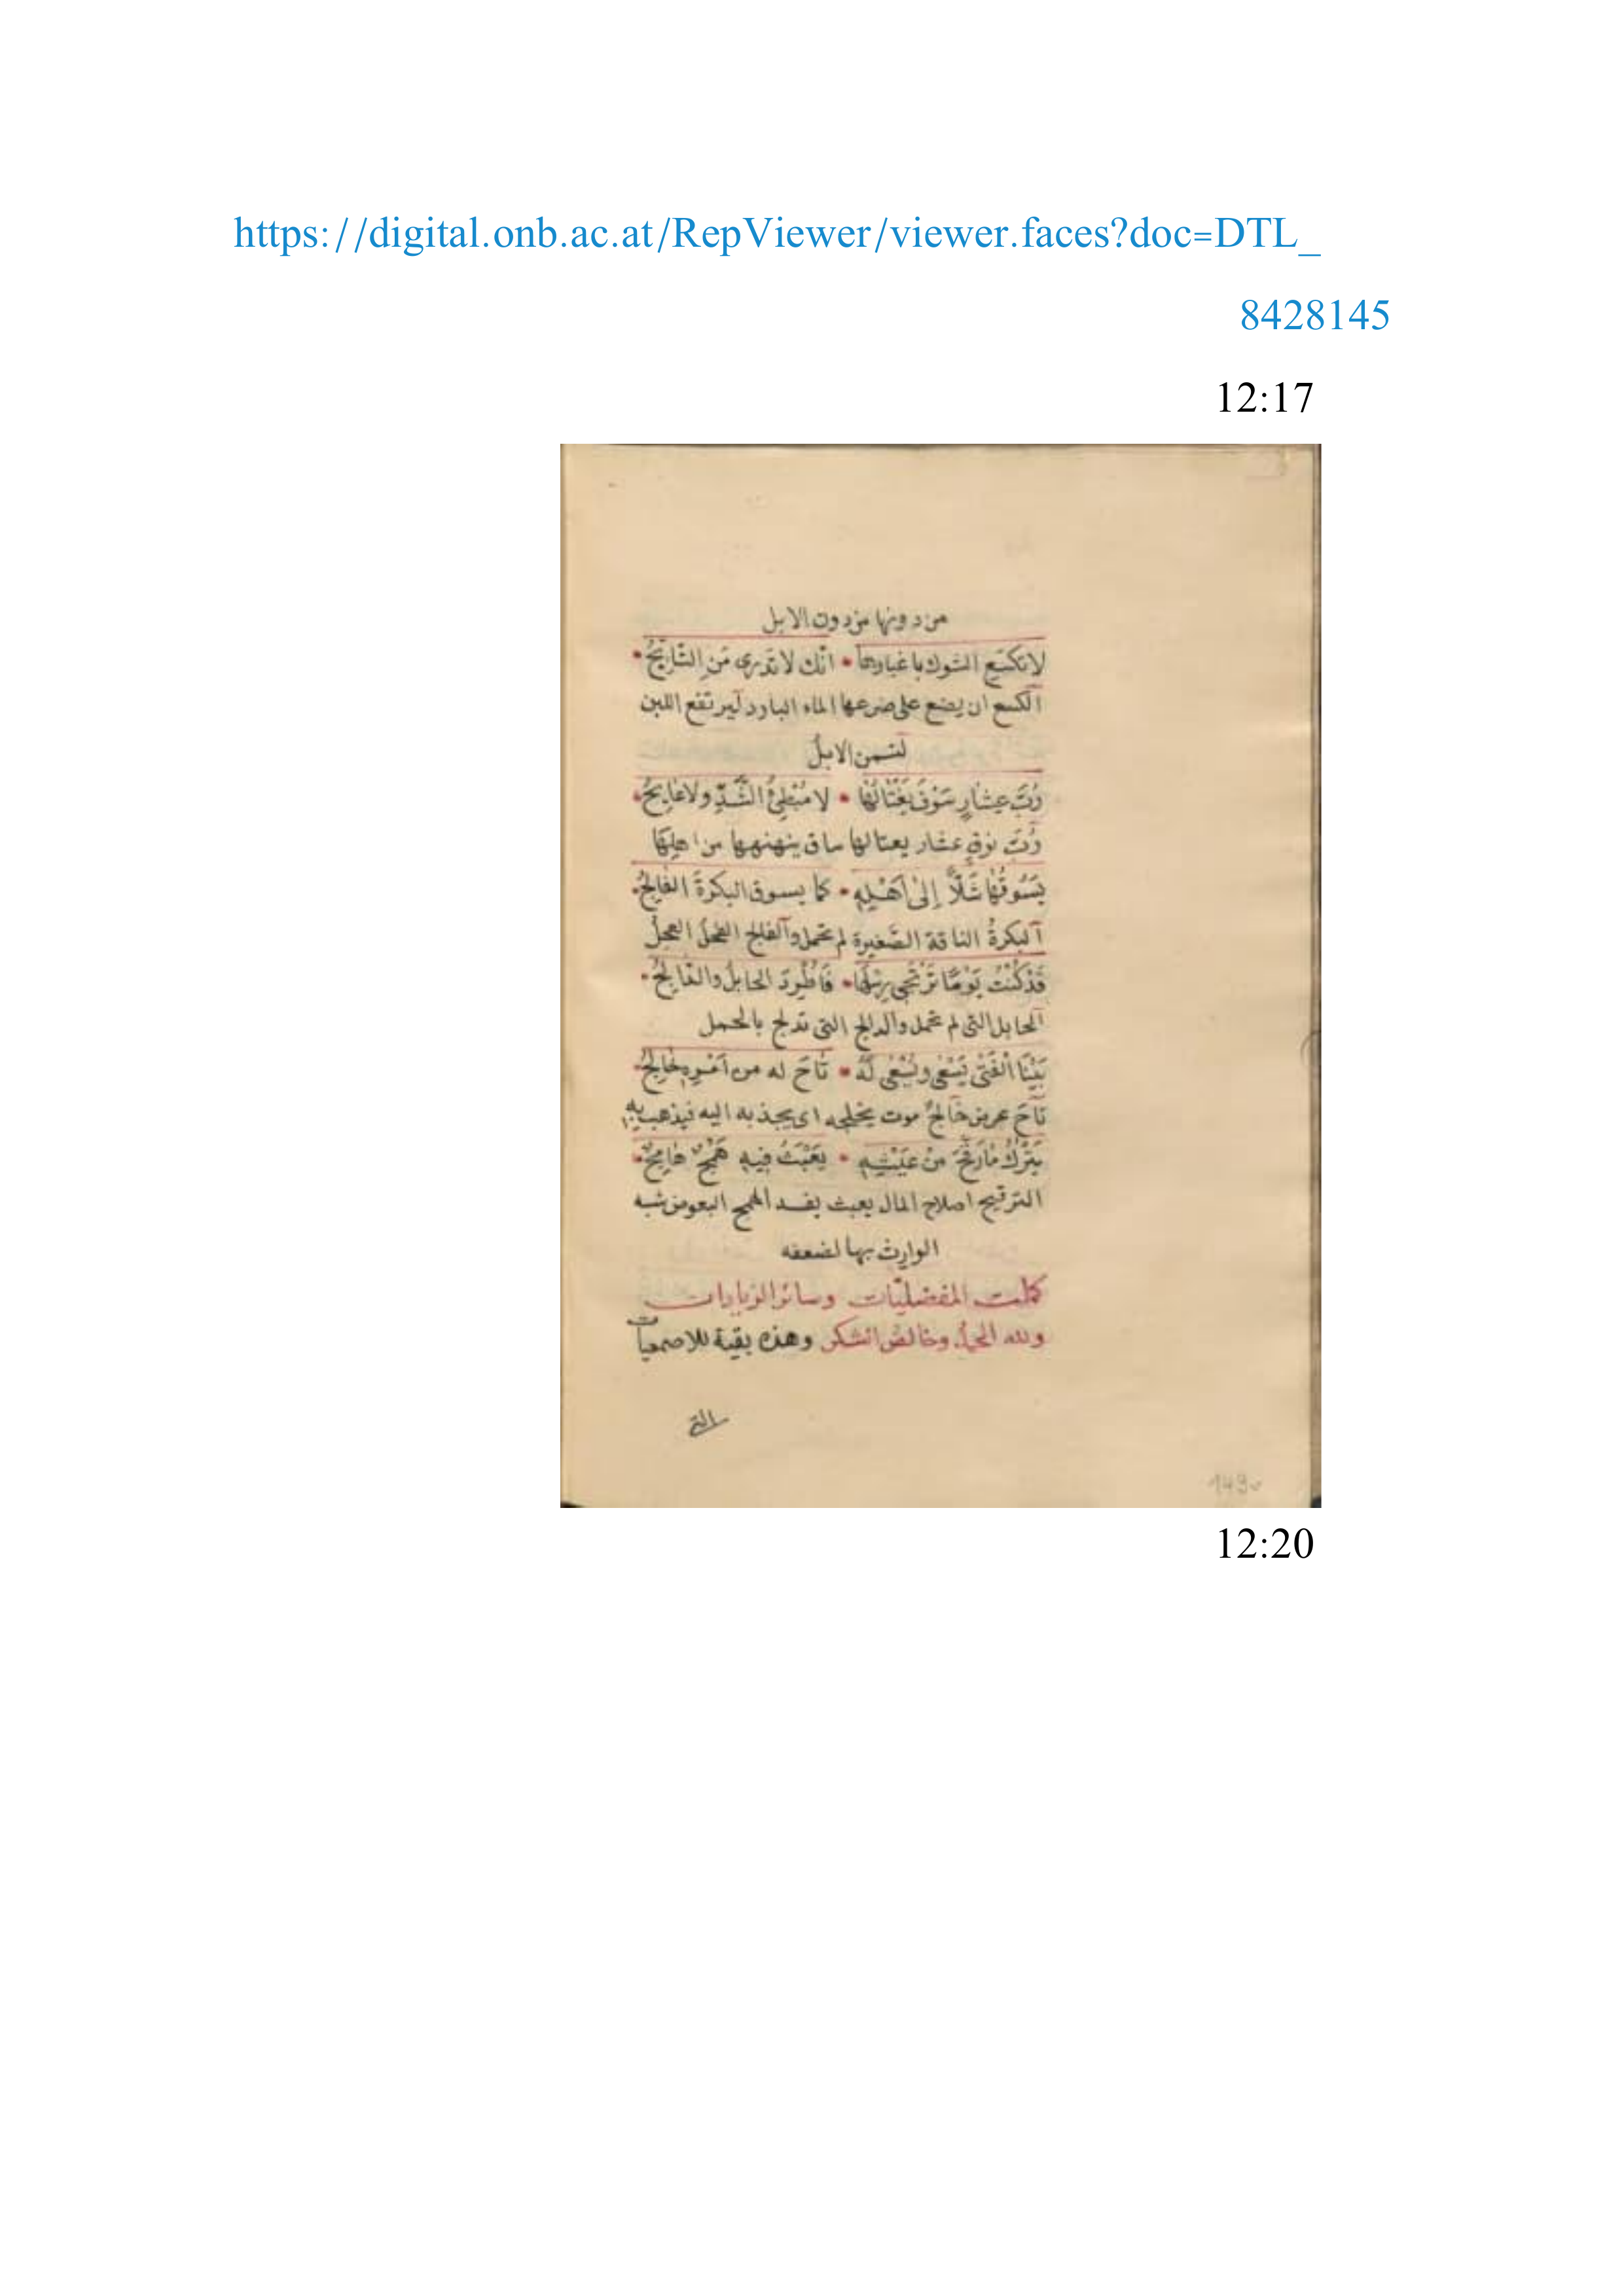 https://digital.onb.ac.at/RepViewer/viewer.faces?doc=DTL_
8428145
12:17
من دونها من دون الابل
لا تكسع الشول باغبارها • انك لا تدرى من الناتج •
الكسع ان يضع على ضرعها الماء البارد ليرتفع اللبن
لتسمن الابل
رُبَّ عِشارٍ سَوْفَ يَغْتَالُهَا • لا مُبْطِئُ الشَّدِّ ولا عَايِجُ •
رُبَّ نوق عشار يغتالها ساق ينهنهها من اهلها
يَسُوقُهَا شَلًّا إِلَى أَهْلِهِ • كما يسوق البكرةَ الفَالِجُ •
البكرةُ الناقة الصَّغيرة لم تحمل والفالج الفحلُ
قَدْ كُنْتَ يَوْمًا تَرْتَجِى رِسْلَهَا • فَأُطْرِدَ الحايلُ والدَّالِجُ •
الحايل التى لم تحمل والدالج التى تدلج بالحمل
بَيْنَا الْفَتَى يَسْعَى ويُسْعَى لَهُ • تَاحَ له من أمْرِهِ خَالِجُ •
تَاحَ عرض خَالجٌ موت يخلجه اى يجذبه اليه فيذهب به
يَتْرُكُ مَا رَقَّحَ مِنْ عَيْشِهِ • يَعْبَثُ فِيهِ هَمَجٌ هَامِجُ •
الترقيح اصلاح المال يعبث يفسد الهمج البعوض شبه
الوارث بها لضعفه
كملت المفضليّات وسائر الزيادات
ولله الحمد وخالص الشكر وهذه بقية للاصمعيات
التى
149v
12:20